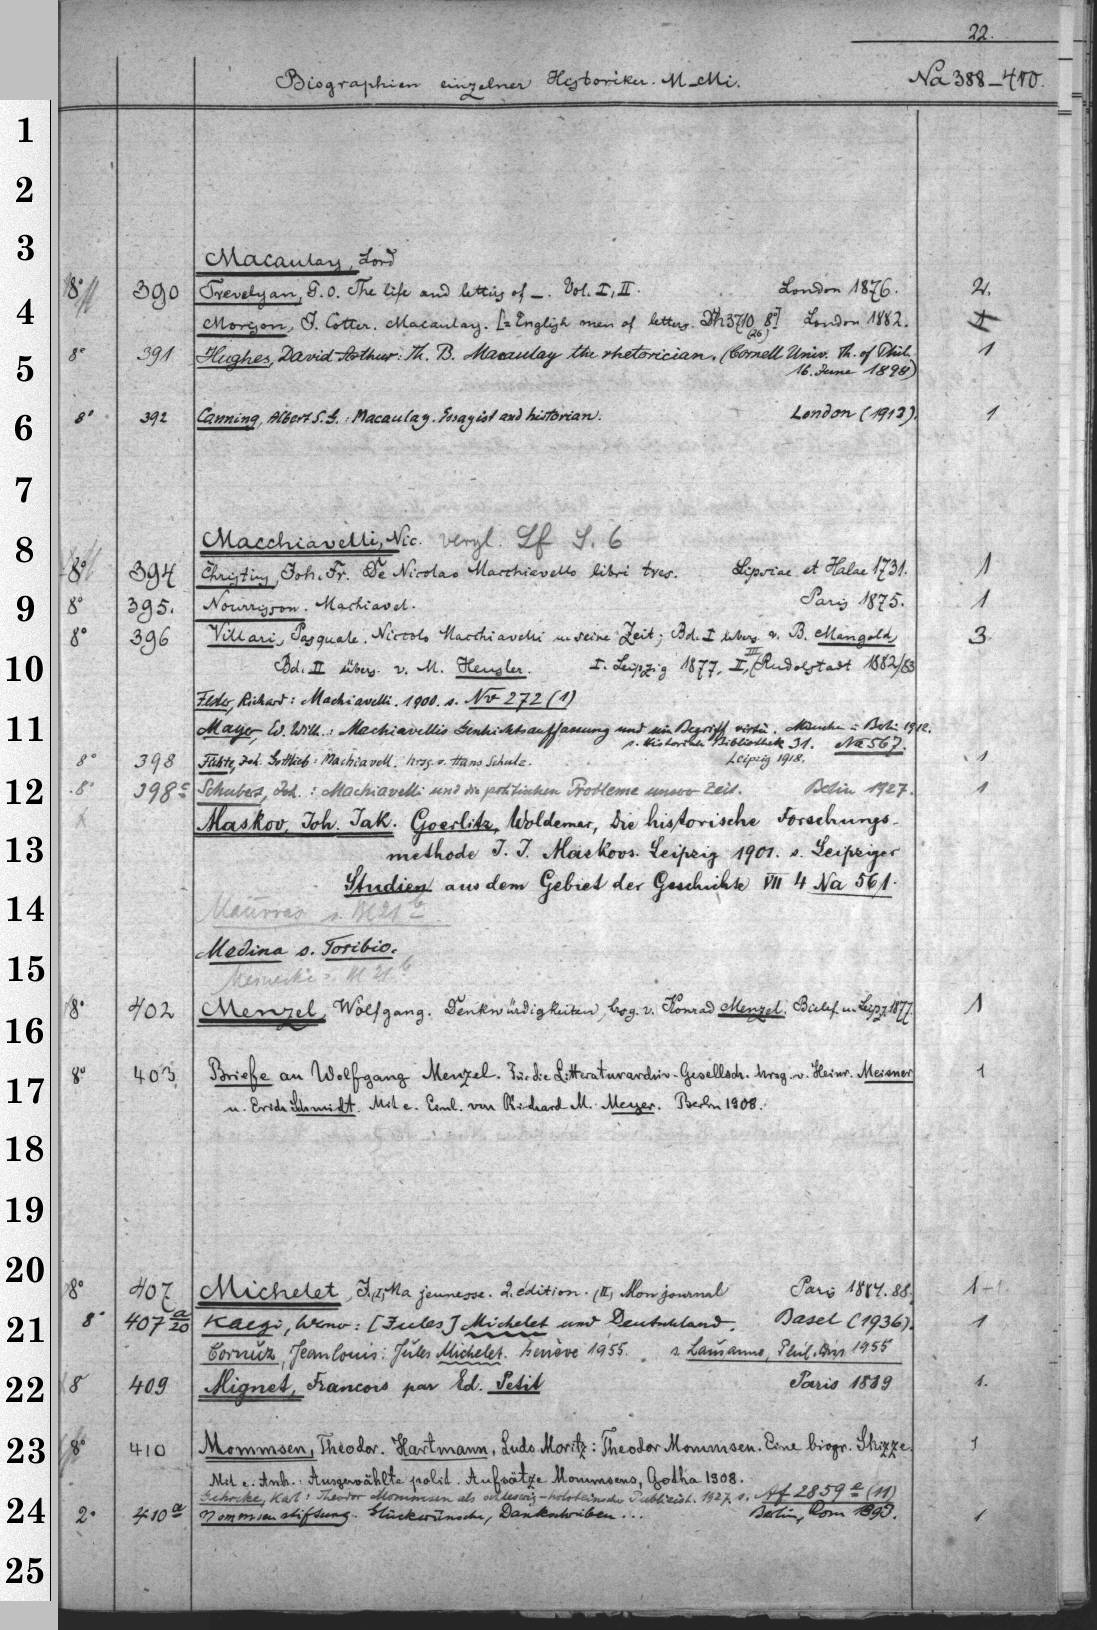 22.
Biographien einzelner Historiker. M-Mi. Na 388-410.
1
2
3
Macaulay, Lord
8° 390 Trevelyan, G. O. The life and letters of —. Vol. I, II. London 1876. 2.
4
Morison, J. Cotter. Macaulay. [= English men of letters. Dh 3710 8°] London 1882.
(26)
8° 391 Hughes, David Arthur: Th. B. Macaulay the rhetorician. (Cornell Univ. Th. of Phil. 1
5
16. June 1898)
6
8° 392 Canning, Albert S. G.: Macaulay. Essayist and historian. London (1913). 1
7
Macchiavelli, Nic. vergl. Lf S. 6
8
8° 394 Christius, Joh. Fr. De Nicolao Macchiavello libri tres. Lipsiae et Halae 1731. 1
9
8° 395. Nourrisson. Machiavel. Paris 1875. 1
8° 396 Villari, Pasquale. Niccolo Macchiavelli u. seine Zeit; Bd. I übers. v. B. Mangold, 3
10
Bd. II übers. v. M. Heusler. I. Leipzig 1877. II, III Rudolstadt 1882/83
Fester, Richard: Machiavelli. 1900. s. Nv 272 (1)
11
Mayer, Ed. Wilh.: Machiavellis Geschichtsauffassung und sein Begriff virtù. München u. Berlin 1912.
s. Historische Bibliothek 31. Na 567.
8° 398 Fichte, Joh. Gottlieb: Machiavell. hrsg. v. Hans Schulz. Leipzig 1918. 1
12
8° 398c Schubert, Joh.: Machiavelli und die politischen Probleme unserer Zeit. Berlin 1927. 1
Maskov, Joh. Jak. Goerlitz, Woldemar, Die historische Forschungs-
13
methode J. J. Maskovs. Leipzig 1901. s. Leipziger
Studien aus dem Gebiet der Geschichte VII 4 Na 561.
14
Maurras s. M 21 b
Medina s. Toribio.
15
Meinecke s. M 21 b
8° 402 Menzel, Wolfgang. Denkwürdigkeiten, hrsg. v. Konrad Menzel. Bielef. u. Leipz. 1877. 1
16
8° 403 Briefe an Wolfgang Menzel. Für die Litteraturarchiv-Gesellsch. hrsg. v. Heinr. Meisner 1
17
u. Erich Schmidt. Mit e. Einl. von Richard M. Meyer. Berlin 1908.
18
19
20
8° 407 Michelet, J. (I) Ma jeunesse. 2. édition. (II) Mon journal Paris 1884. 88. 1
21
8° 407 a/20 Kaegi, Werner: [Jules] Michelet und Deutschland. Basel (1936). 1
Cornuz, Jeanlouis: Jules Michelet. Genève 1955. s. Lausanne, Phil. Diss 1955
22
8 409 Mignet, Francois par Ed. Petit Paris 1889 1.
23
8° 410 Mommsen, Theodor. Hartmann, Ludo Moritz: Theodor Mommsen. Eine biogr. Skizze. 1
Mit e. Anh.: Ausgewählte polit. Aufsätze Mommsens, Gotha 1908.
Gehrcke, Karl: Theodor Mommsen als schleswig-holsteinischer Publizist. 1927. s. Af 2859 a (11)
24
2° 410a Mommsenstiftung. Glückwünsche, Dankschreiben... Berlin, Rom 1893. 1
25